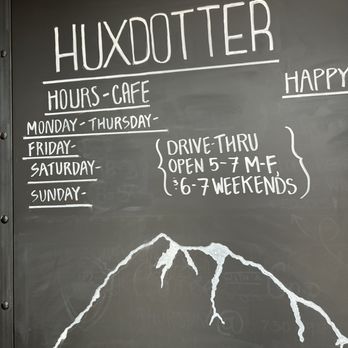 HUXDOTTER
HOURS-CAFE
HAPPY
MONDAY-THURSDAY-
FRIDAY-
SATURDAY-
SUNDAY-
{DRIVE-THRU
OPEN 5-7 M-F,
& 6-7 WEEKENDS}